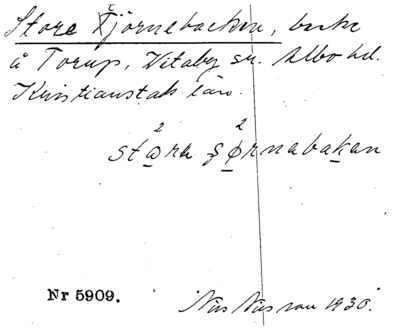 Store Tjörnebacken, backe
å Torup, Vitaby sn. Albo hd.
Kristianstads län.
2 2
stora ʂørnabakan
Nr 5909.
Nils Nilsson 1930.